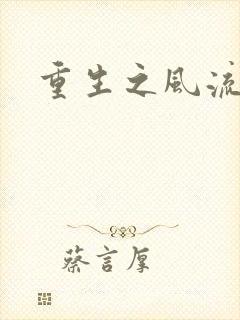 重生之風流
蔡言厚